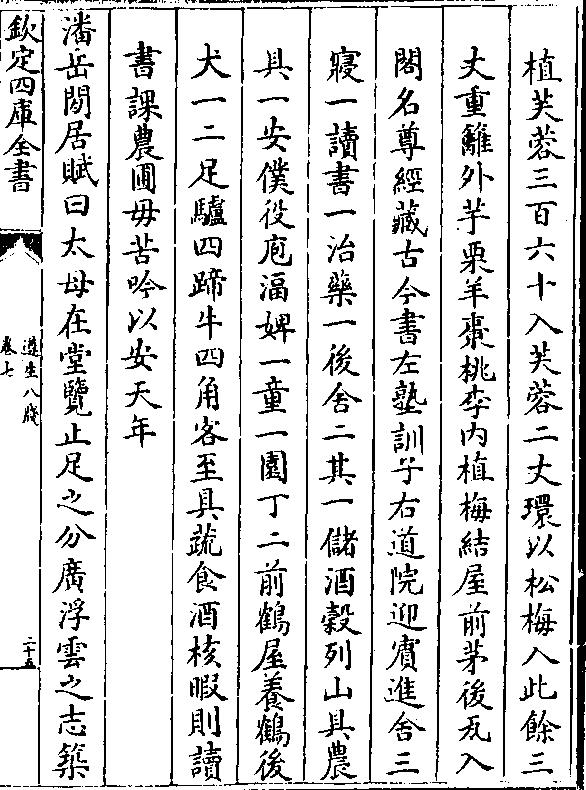 植芙蓉三百六十入芙蓉二丈環以松梅入此餘三
丈重籬外芋栗羊棗桃李内植梅結屋前茅後瓦入
閣名尊經藏古今書左塾訓子右道院迎賓進舍三
寢一讀書一治藥一後舍二其一儲酒穀列山具農
具一安僕役庖湢婢一童一園丁二前鶴屋養鶴後
犬一二足驢四蹄牛四角客至具蔬食酒核暇則讀
書課農圃毋苦吟以安天年
潘岳閒居賦曰太母在堂覽止足之分廣浮雲之志築
欽定四庫全書
遵生八牋
卷七
二十五